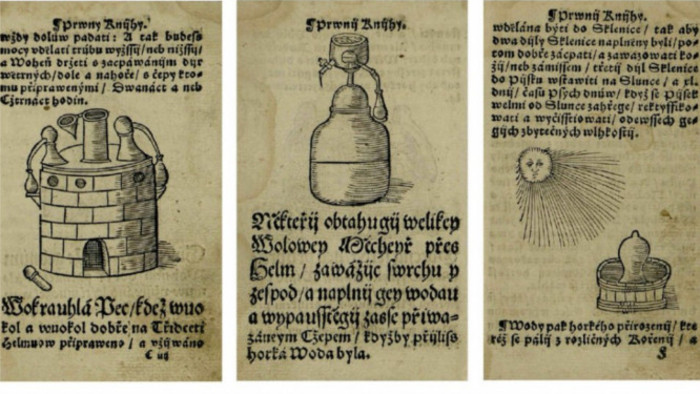 Prwnij Knijhy.
wždy dolůw padati: A tak budeš
mocy vdělati trúbu wyžssij/neb nižssij/
a Woheň držeti s zacpáwánijm dijr
wětrných/dole a nahoře/ s čepy kto-
mu připrawenými/ Dwanáct a neb
Cžtrnáct hodin.
Wokrauhlá Pec/kdež wuo
kol a wuokol dobře na Třidceti
Helmuow připraweno/ a vžijwáno
C iij
Prwnij Knijhy.
Někteřij obtahugij welikey
Wolowey Měcheyř přes
Helm/ zawážijc swrchu y
zespod/a naplnij gey wodau
a wypausstěgij zasse přiwá-
zaneym Cžepem/ kdyžby přijliss
horká Woda byla.
Prwnij Knijhy.
wdělána býti do Sklenice/ tak aby
dwa dijly Sklenice naplněny byli/po-
tom dobře zácpati/ a zawazowati ko-
žij/neb zámissem/ třetij dijl Sklenice
do Pijsku wstawiti na Slunce/ a xl.
dnij/ času Psých dnůw/ když se Pijsek
welmi od Slunce zahřege/ rektyffiko-
wati a wyčisstiowati/ odewssech ge-
gijch zbytečných wlhkostij.
Wody pak horkého přirozenij/ kte
réž se pálij z rozličných Kořenij/ a